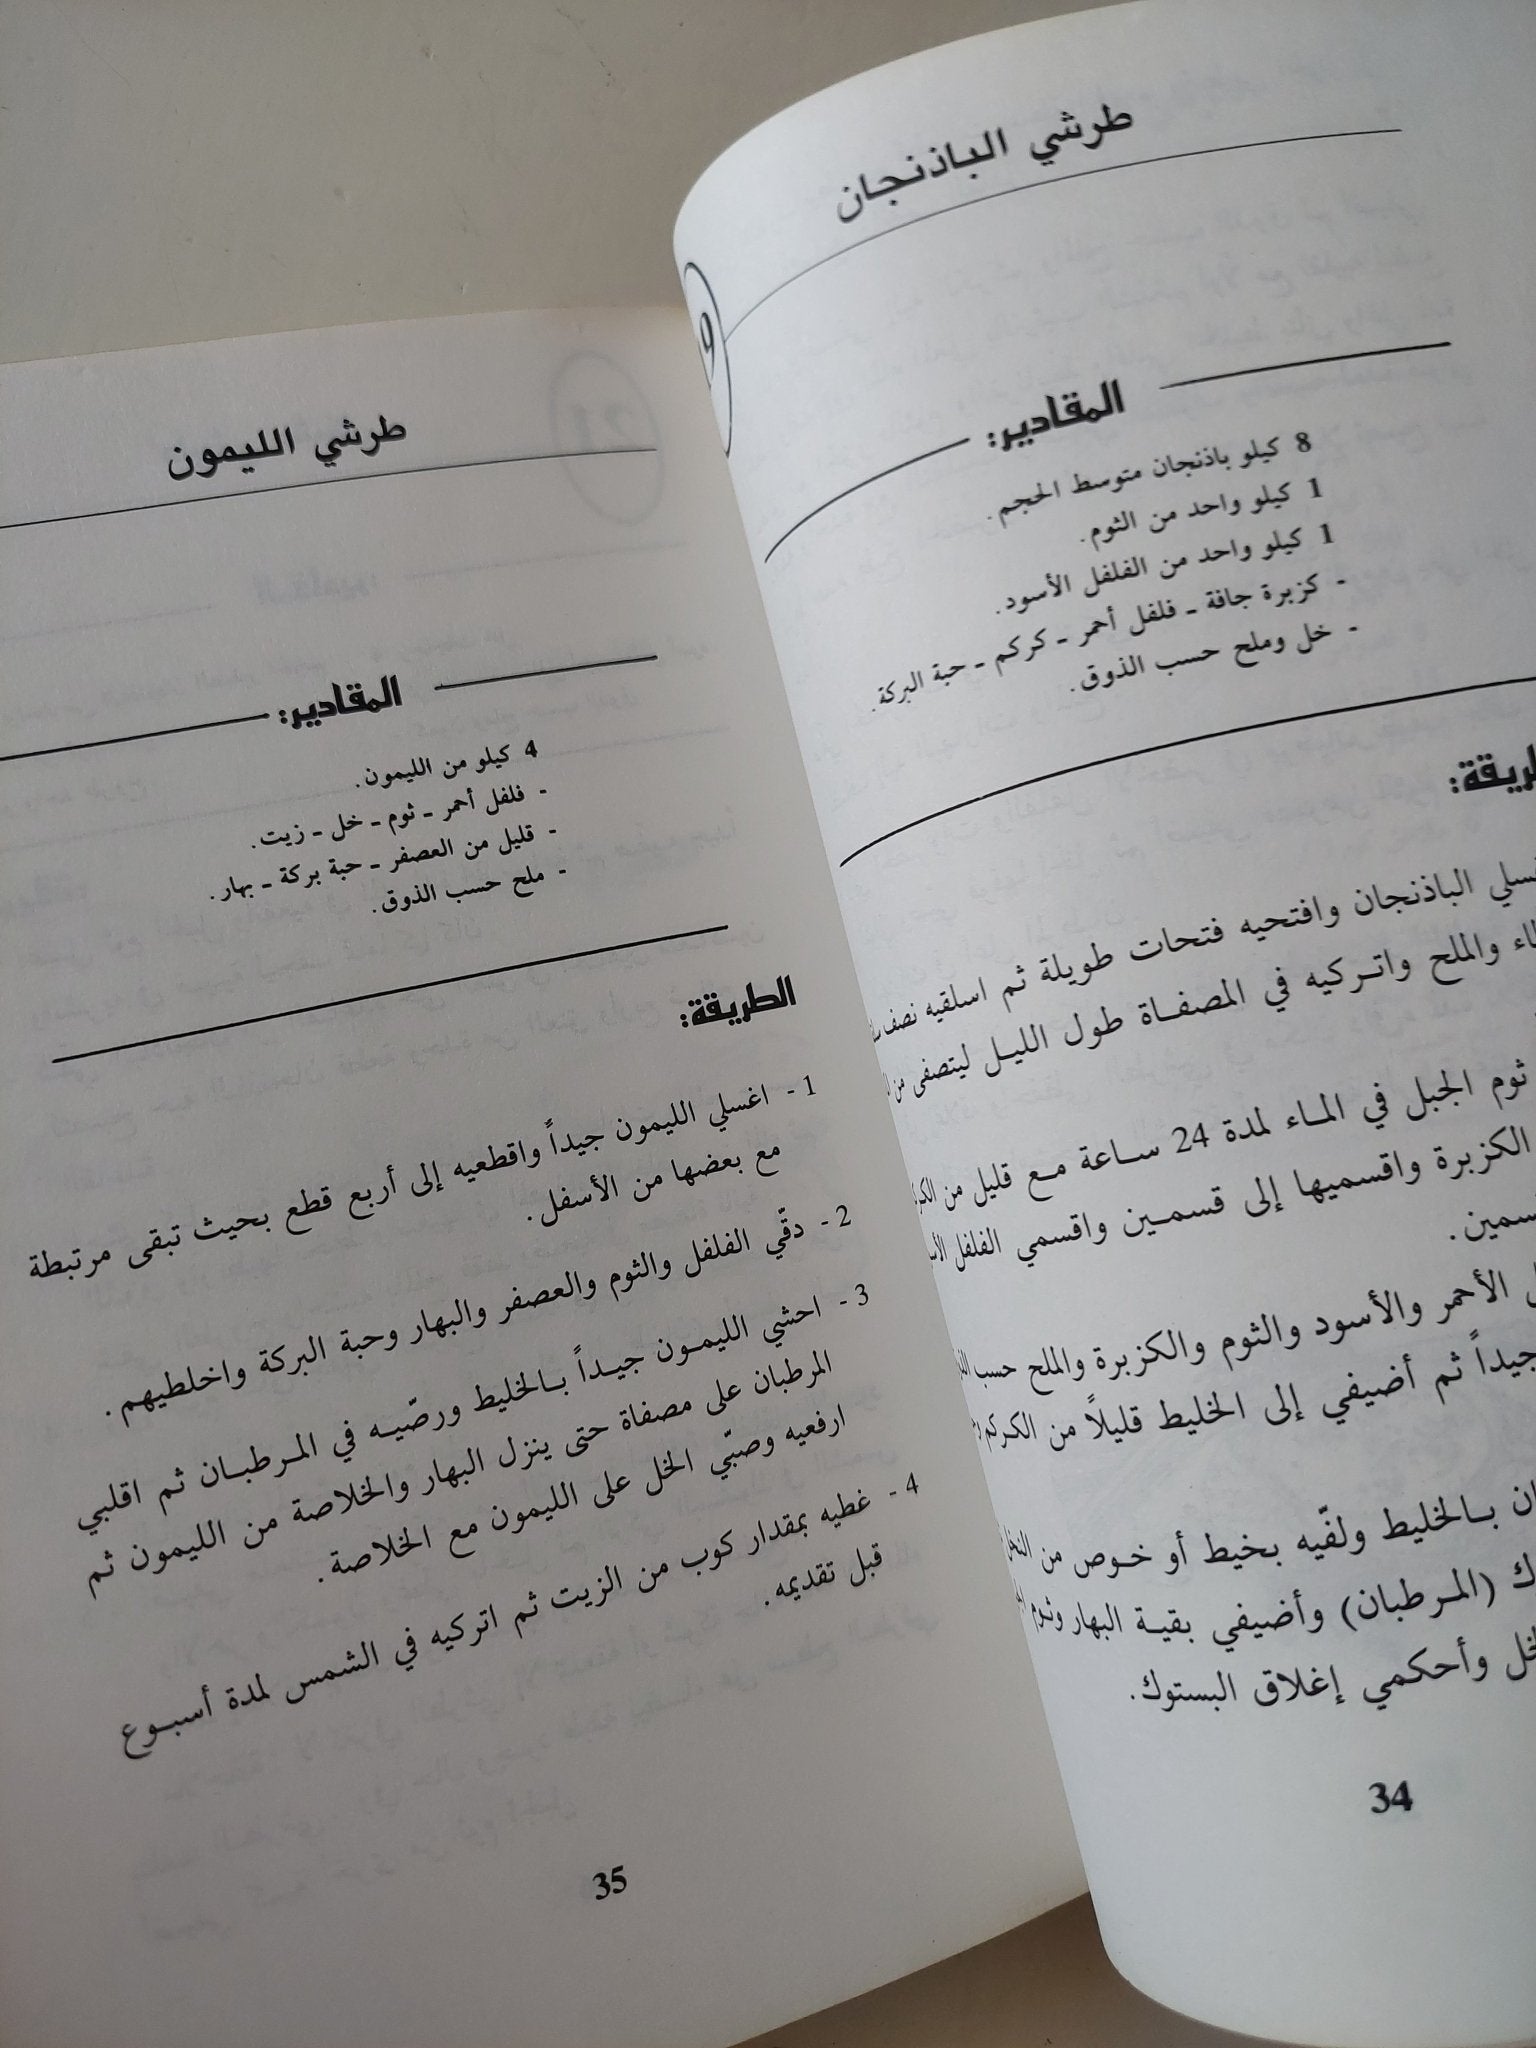 طرشي الباذنجان
9
المقادير:
8 كيلو باذنجان متوسط الحجم.
1 كيلو واحد من الثوم.
1 كيلو واحد من الفلفل الأسود.
- كزبرة جافة ـ فلفل أحمر ـ كركم ـ حبة البركة.
- خل وملح حسب الذوق.
الباذنجان وافتحيه فتحات طويلة ثم اسلقيه نصف
والملح واتركيه في المصفاة طول الليل ليتصفى من
ثوم الجبل في الماء لمدة 24 ساعة مع قليل من
الكزبرة واقسميها إلى قسمين واقسمي الفلفل
الأحمر والأسود والثوم والكزبرة والملح حسب
جيداً ثم أضيفي إلى الخليط قليلاً من الكركم
بالخليط ولفّيه بخيط أو خوص من النخل
(المرطبان) وأضيفي بقية البهار وثوم
وأحكمي إغلاق البستوك.
34
طرشي الليمون
المقادير:
4 كيلو من الليمون.
- فلفل أحمر ـ ثوم ـ خل ـ زيت.
- قليل من العصفر ـ حبة بركة ـ بهار.
- ملح حسب الذوق.
الطريقة:
1 - اغسلي الليمون جيداً واقطعيه إلى أربع قطع بحيث تبقى مرتبطة
مع بعضها من الأسفل.
2 - دقّي الفلفل والثوم والعصفر والبهار وحبة البركة واخلطيهم.
3 - احشي الليمون جيداً بالخليط ورصّيه في المرطبان ثم اقلبي
المرطبان على مصفاة حتى ينزل البهار والخلاصة من الليمون ثم
ارفعيه وصبّي الخل على الليمون مع الخلاصة.
4 - غطيه بمقدار كوب من الزيت ثم اتركيه في الشمس لمدة أسبوع
قبل تقديمه.
35